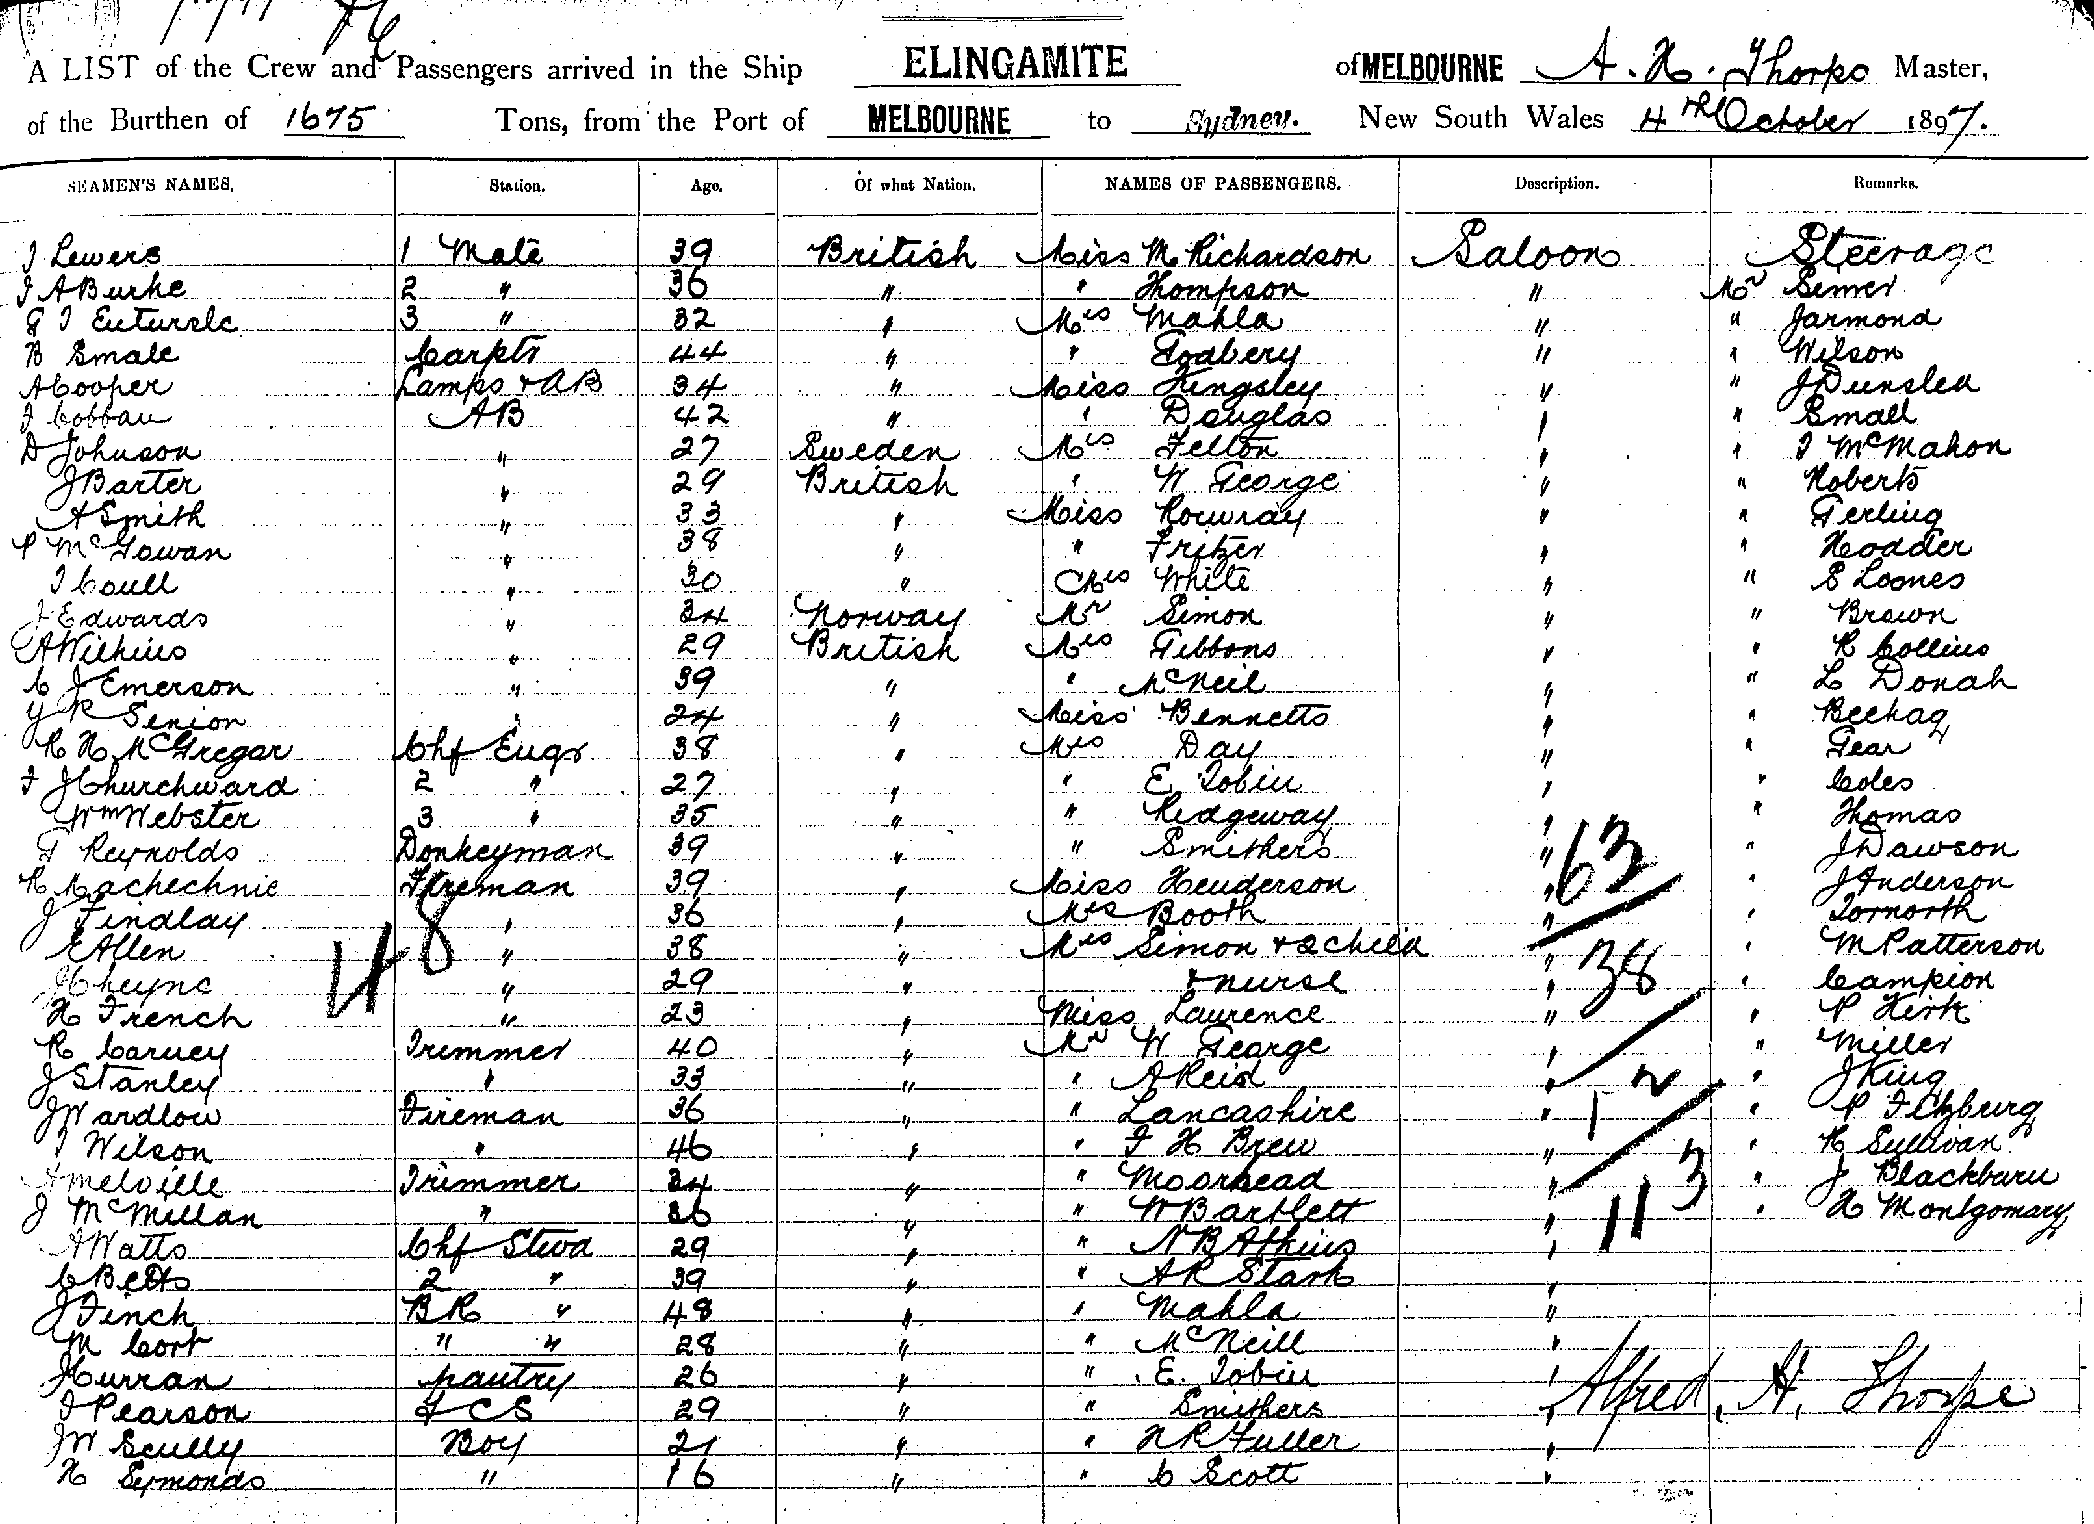 A LIST of the Crew and Passengers arrived in the Ship ELINGAMITE of MELBOURNE A. H. Thorpe Master,
of the Burthen of 1675 Tons, from the Port of MELBOURNE to Sydney. New South Wales 4th October 1897.
SEAMEN'S NAMES. Station. Age. Of what Nation. NAMES OF PASSENGERS. Description. Remarks.
J Lewers 1 Mate 39 British Miss M Richardson Saloon Steerage
J A Burke 2 " 36 " " Thompson " Mr
3 " 32 " Mrs Mahla " " Jarmond
B Smale Carptr 44 " " Godbery " " Wilson
A Cooper Lamps & AB 34 " Miss Kingsley " " J Dunslea
AB 42 " " Douglas " " Small
D Johnson " 27 Sweden Mrs Felton " " J McMahon
J Barter " 29 British " W George " " Roberts
A Smith " 33 " Miss Rowray " " Gerling
P McGowan " 38 " " Fritzer " " Hodder
J Coull " 30 " Mrs White " " S Loones
J Edwards " 34 Norway Mr Simon " " Brown
A Wilkins " 29 British Mrs Gibbons " " R Collins
C J Emerson " 39 " " McNeil " " L Donah
Y R Senior " 24 " Miss Bennetts " "
R H McGregar Chf Engr 38 " Mrs Day " " Gear
F J Churchward 2 " 27 " " E Tobin " " Coles
Wm Webster 3 " 35 " " Ridgeway " " Thomas
G Reynolds Donkeyman 39 " " Smithers " " J Dawson
R Machechnie Fireman 39 " Miss Henderson " " J Anderson
J Findlay " 36 " Mrs Booth " " Tornorth
E Allen " 38 " Mrs Simon & 2 child " " M Patterson
J Cheyne " 29 " & nurse " " Campion
H French " 23 " Miss Laurence " " P Kirk
R Carney Trimmer 40 " Mr W George " " Miller
J Stanley " 33 " " A Reid " " J King
J Wardlow Fireman 36 " " Lancashire " " P Fitzburg
J Wilson " 46 " " F H Brew " " R Sullivan
A Melville Trimmer 34 " " Moorhead " " J Blackburn
J McMillan " 36 " " W Bartlett " " H Montgomary
A Watts Chf Stwd 29 " " N B Athins "
C Betts 2 " 39 " " A R Stark "
J Finch BR " 48 " " Mahla "
M Cort " " 28 " " McNeill "
J Curran pantry 26 " " E. Tobin "
J Pearson F C S 29 " " Smithers "
J W Scully Boy 21 " " H R Fuller "
H Symonds " 16 " " C Scott "
48
63
38
12
113
Alfred. H. Thorpe